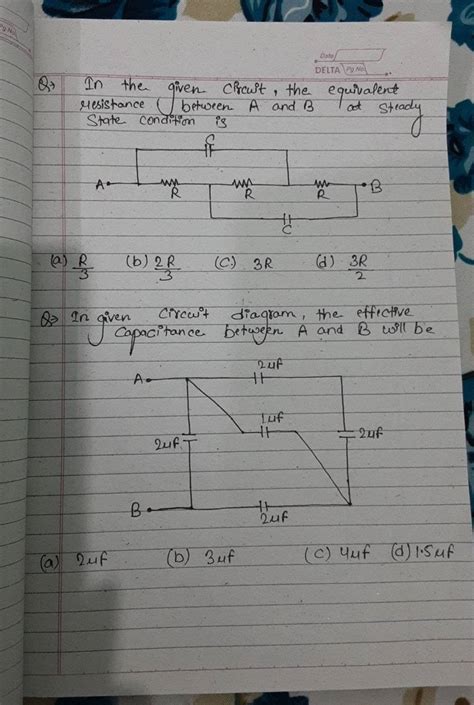 Date
DELTA Pg No.
Q→ In the given circuit, the equivalent
resistance between A and B at steady
state condition is
C
A B
R R R
C
(a) R/3 (b) 2R/3 (c) 3R (d) 3R/2
Q→ In given circuit diagram, the effective
capacitance between A and B will be
2uf
A
1uf
2uf 2uf
B
2uf
(a) 2uf (b) 3uf (c) 4uf (d) 1.5uf